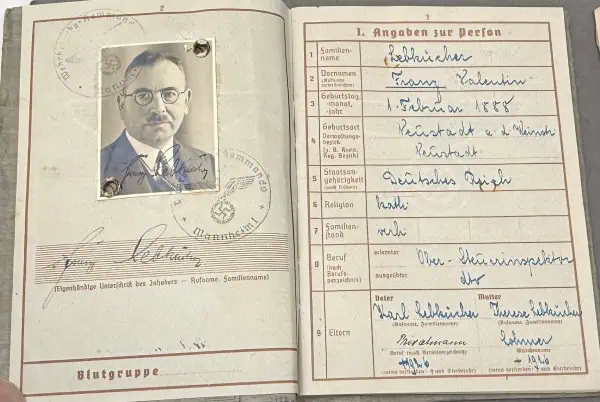 2
Wehrbezirks-Kommando
Franz Lebkücher
Kommando
Mannheim I
Franz Lebkücher
(Eigenhändige Unterschrift des Inhabers — Rufname, Familienname)
Blutgruppe
3
I. Angaben zur Person
1 Familien-
name
Lebkücher
2 Vornamen
(Rufname
unterstreichen)
Franz Valentin
3 Geburtstag,
-monat,
-jahr
1. Februar 1888
4 Geburtsort
Verwaltungs-
bezirk
(z. B. Kreis,
Reg. Bezirk)
Neustadt a d Weinstr
Neustadt
5 Staatsan-
gehörigkeit
(auch frühere)
Deutsches Reich
6 Religion
kath
7 Familien-
stand
verh
8 Beruf
(nach
Berufs-
verzeichnis)
erlernter
Ober-Steuerinspektor
ausgeübter
dto
9 Eltern
Vater
Mutter
Karl Lebkücher
Therese Lebkücher
(Rufname, Familienname)
(Rufname, Familienname)
Lohner
Beruf (nach Berufsverzeichnis)
(Mädchenname)
+1926
+1926
(wenn verstorben: † und Sterbejahr)
(wenn verstorben: † und Sterbejahr)